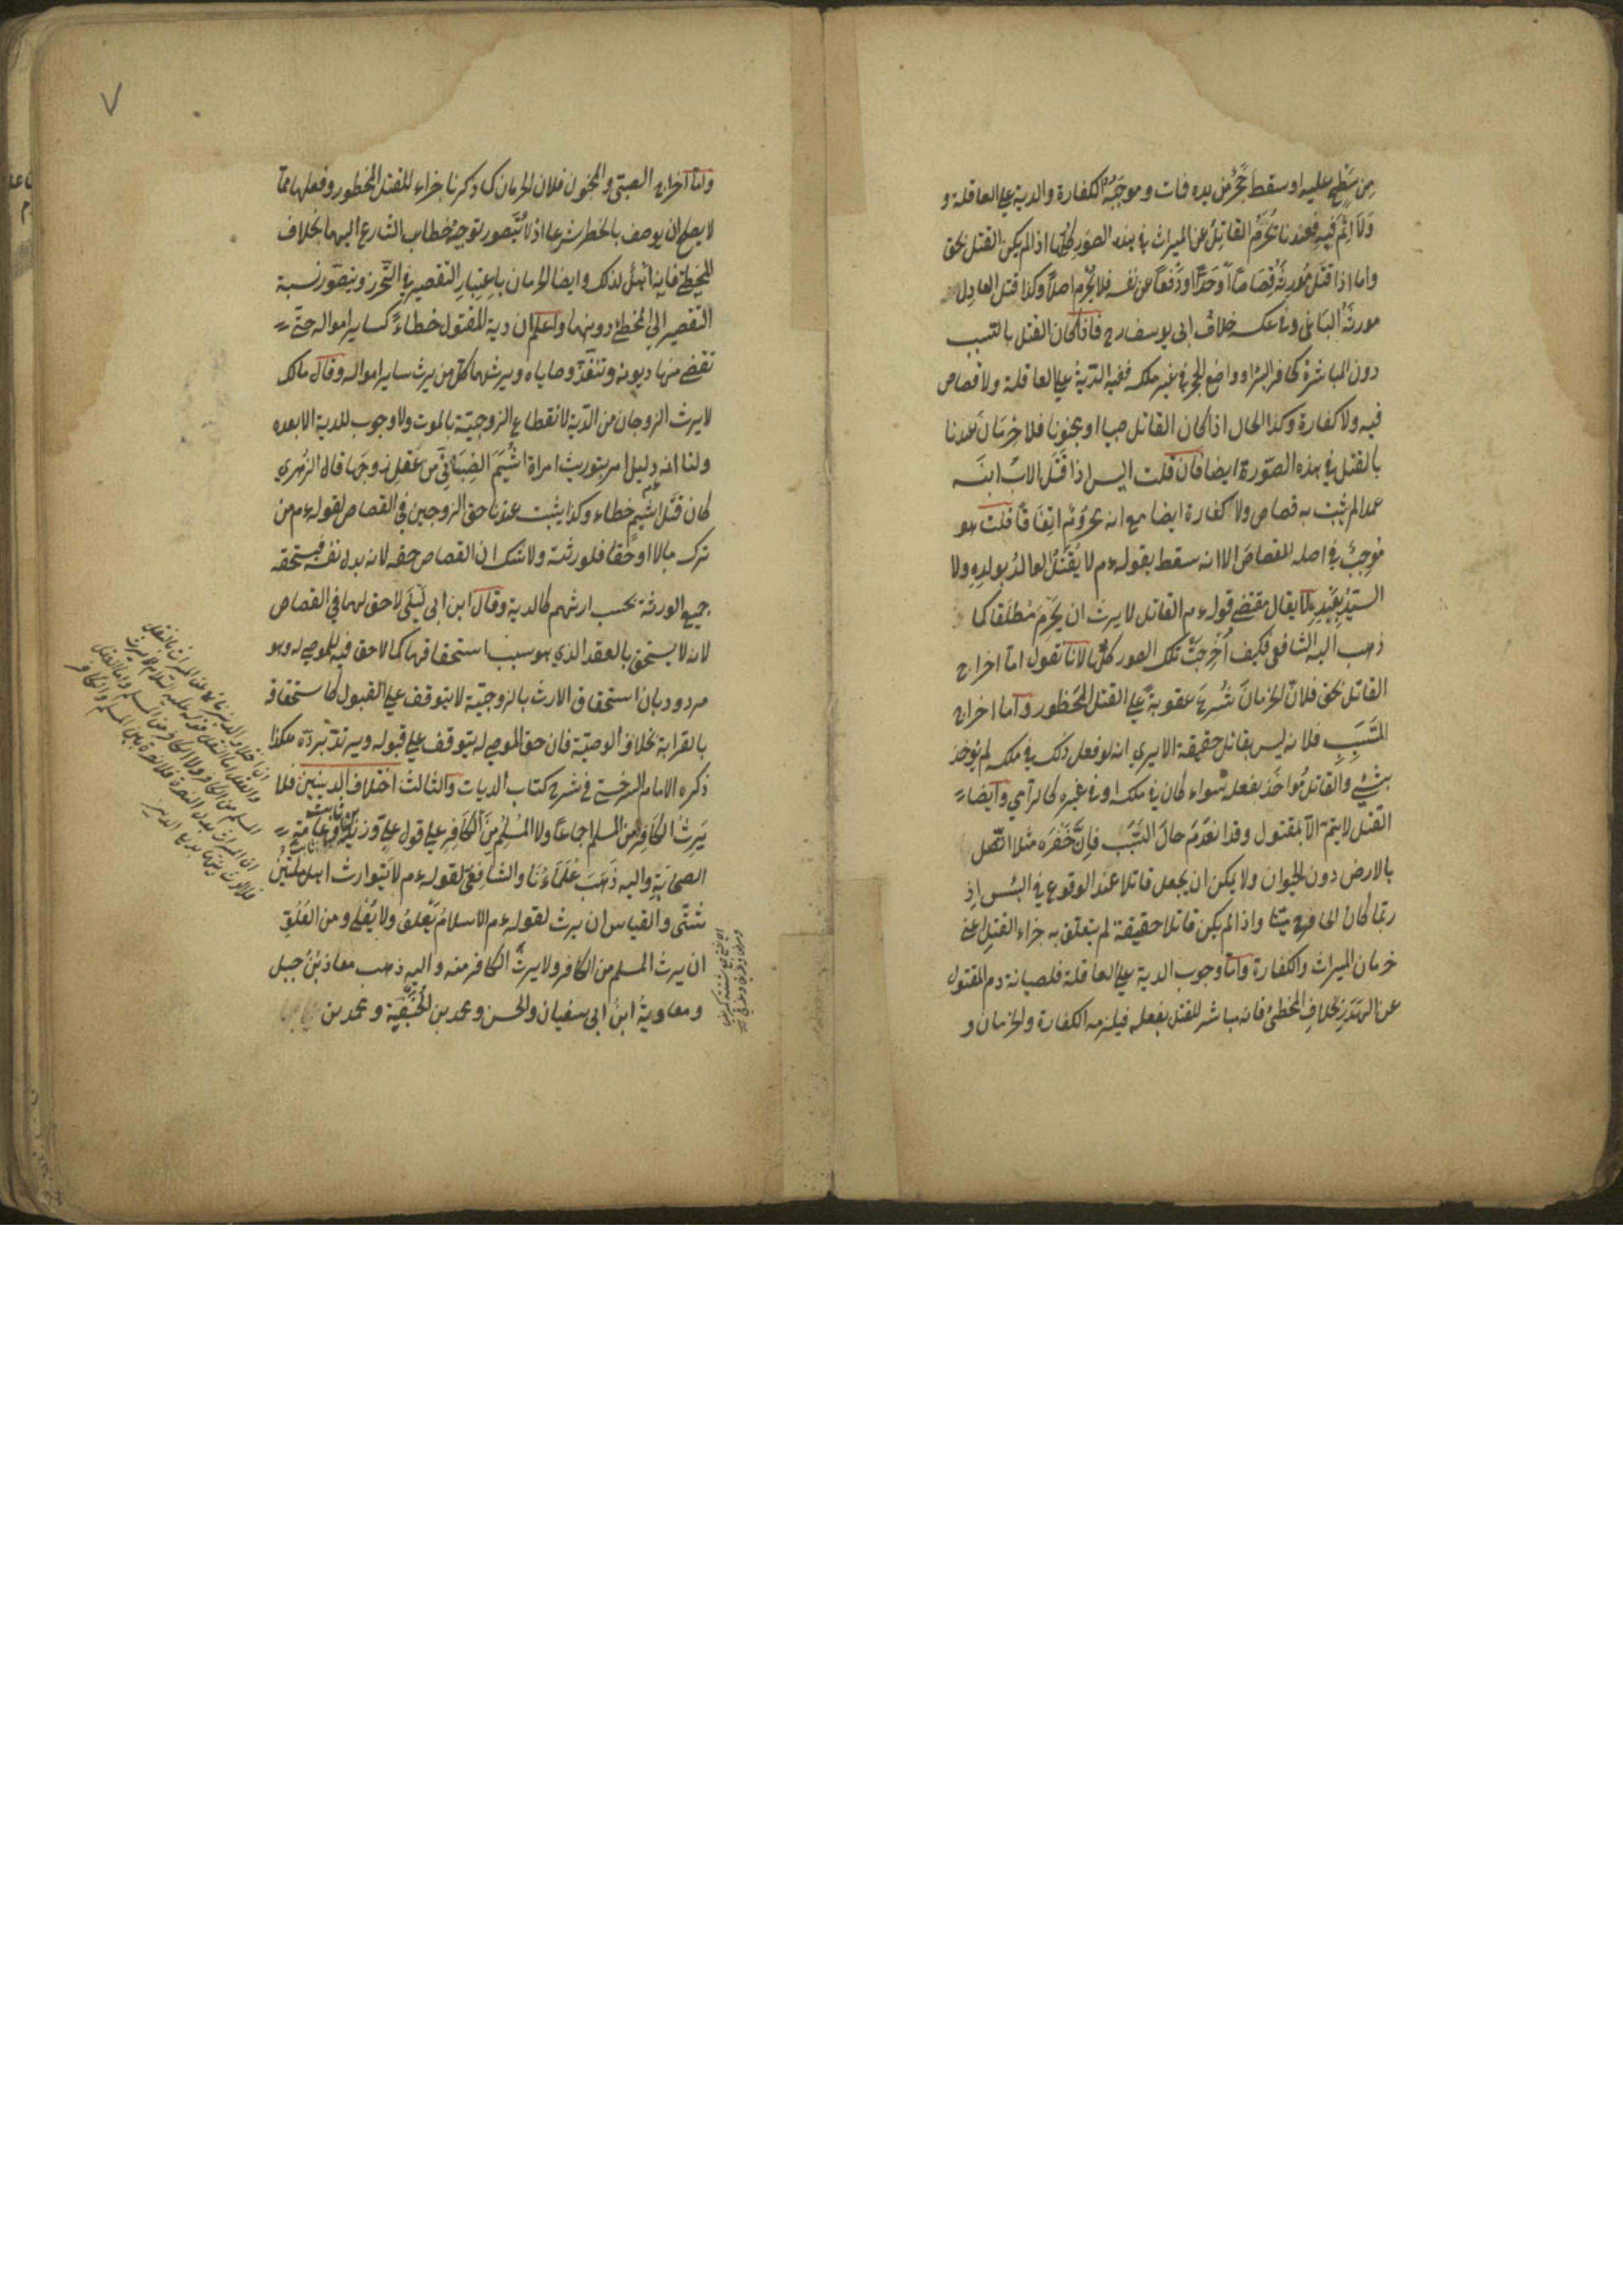 من سطح عليه او سقط حجر من يده فمات وموجبه الكفارة والدية على العاقلة و
ولا اثم فيه فعندنا يحرم القاتل عن الميراث في هذه الصور كلها اذا لم يكن القتل بحق
واما اذا قتل مورثه قصاصا او حدا او دفعا عن نفسه فلا يحرم اصلا وكذا قتل العادل
مورثه الباغي وفي عكسه خلاف ابي يوسف رح فاذا كان القتل بالتسبب
دون المباشرة كحافر البئر او واضع الحجر في غير ملكه ففيه الدية على العاقلة ولا قصاص
فيه ولا كفارة وكذا الحال اذا كان القاتل صبيا او مجنونا فلا حرمان عندنا
بالقتل في هذه الصورة ايضا فان قلت اليس اذا قتل الاب ابنه
عمدا لم يثبت به قصاص ولا كفارة ايضا مع انه محروم اتفاقا قلت هو
موجب في اصله للقصاص الا انه سقط بقوله ءم لا يقتل الوالد بولده ولا
السيد بعبده لا يقال مقتضى قوله ءم القاتل لا يرث ان يحرم مطلقا كما
ذهب اليه الشافعي فكيف اخرجت تلك الصور كلها لانا نقول اما اخراج
القاتل بحق فلان الحرمان شرع عقوبة على القتل المحظور واما اخراج
المتسبب فلانه ليس بقاتل حقيقة الا يرى انه لو فعل ذلك في ملكه لم يؤخذ
بشئ والقاتل مؤاخذ بفعله سواء كان في ملكه او في غيره كالرامي وايضا
القتل لا يتم الا بمقتول وقد انعدم حال التسبب فان حفره مثلا اتصل
بالارض دون الحيوان ولا يمكن ان يجعل قاتلا عند الوقوع في البئر اذ
ربما كان الحافر ميتا واذا لم يكن قاتلا حقيقة لم يتعلق به جزاء القتل اعني
حرمان الميراث والكفارة واما وجوب الدية على العاقلة فلصيانة دم المقتول
عن الهدر بخلاف المخطئ فانه مباشر للقتل بفعله فيلزمه الكفارة والحرمان و
واما اخراج الصبي والمجنون فلان الحرمان كما ذكرنا جزاء للقتل المحظور وفعلهما مما
لا يصلح ان يوصف بالحظر شرعا اذ لا يتصور توجه خطاب الشارع اليهما بخلاف
المخطئ فانه اهل لذلك وايضا الحرمان باعتبار التقصير في التحرز ويتصور نسبة
التقصير الى المخطئ دونهما واعلم ان دية المقتول خطاء كساير امواله حتى
تقضى منها ديونه وتنفذ وصاياه ويرثهما كل من يرث ساير امواله وقال مالك
لا يرث الزوجان من الدية لانقطاع الزوجية بالموت ولا وجوب للدية الا بعده
ولنا انه دليل امر بتوريث امراة اشيم الضبابي من عقل زوجها قال الزهري
كان قتل اشيم خطاء وكذا يثبت عندنا حق الزوجين في القصاص لقوله ءم من
ترك مالا او حقا فلورثته ولا شك ان القصاص حقه لانه بدل نفسه فيستحقه
جميع الورثة بحسب ارثهم كالدية وقال ابن ابي ليلى لا حق لهما في القصاص
لانه لا يستحق بالعقد الذي هو سبب استحقاقهما كما لا حق فيه للموصى له وهو
مردود بان استحقاق الارث بالزوجية لا يتوقف على القبول كاستحقاقه
بالقرابة بخلاف الوصية فان حق الموصى له يتوقف على قبوله ويرتد برده هكذا
ذكره الامام السرخسي في شرح كتاب الديات والثالث اختلاف الدينين فلا
يرث الكافر من المسلم اجماعا ولا المسلم من الكافر على قول علي وزيد بن ثابت وعامة
الصحابة واليه ذهب علماءنا والشافعي لقوله ءم لا يتوارث اهل ملتين
شتى والقياس ان يرث لقوله ءم الاسلام يعلو ولا يعلى ومن العلو
ان يرث المسلم من الكافر ولا يرث الكافر منه واليه ذهب معاذ بن جبل
ومعاوية ابن ابي سفيان والحسن ومحمد بن الحنفية ومحمد بن